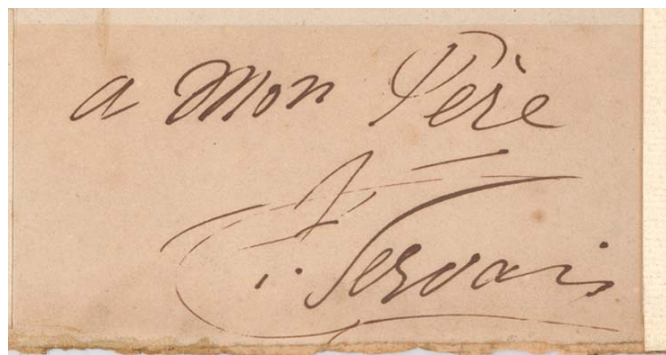 a Mon Père
F. Servais